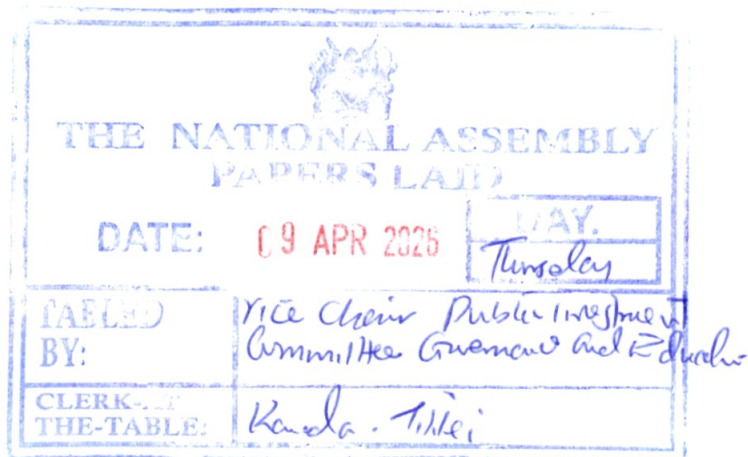 THE NATIONAL ASSEMBLY
PAPERS LAID
DATE: 09 APR 2026
DAY.
Thursday
TABLED BY:
Vice Chair Public Investment
Committee Governance and Educatio
CLERK-AT THE-TABLE: